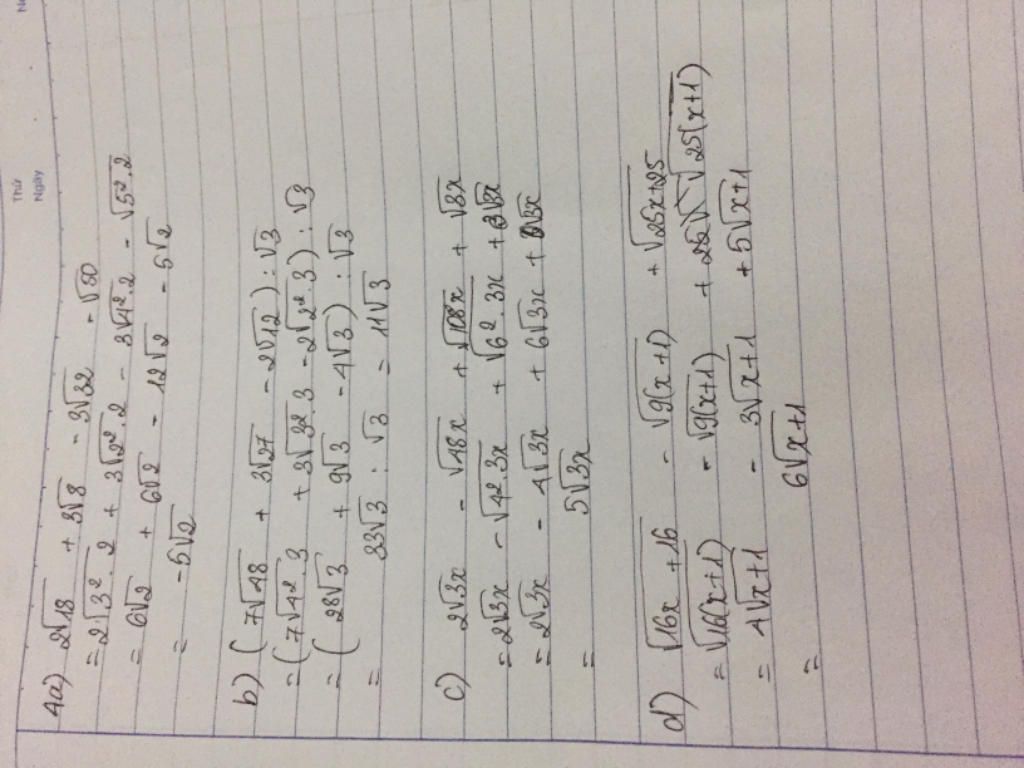 Thứ
Ngày
4a) 2√18 + 3√8 - 3√32 - √50
= 2√3².2 + 3√2².2 - 3√4².2 - √5².2
= 6√2 + 6√2 - 12√2 - 5√2
= -5√2
b) (7√48 + 3√27 - 2√12) : √3
= (7√4².3 + 3√3².3 - 2√2².3) : √3
= (28√3 + 9√3 - 4√3) : √3
= 33√3 : √3 = 11√3
c) 2√3x - √48x + √108x + √3x
= 2√3x - √4².3x + √6².3x + √3x
= 2√3x - 4√3x + 6√3x + √3x
= 5√3x
d) √16x+16 - √9(x+1) + √25x+25
= √16(x+1) - √9(x+1) + √25(x+1)
= 4√x+1 - 3√x+1 + 5√x+1
= 6√x+1